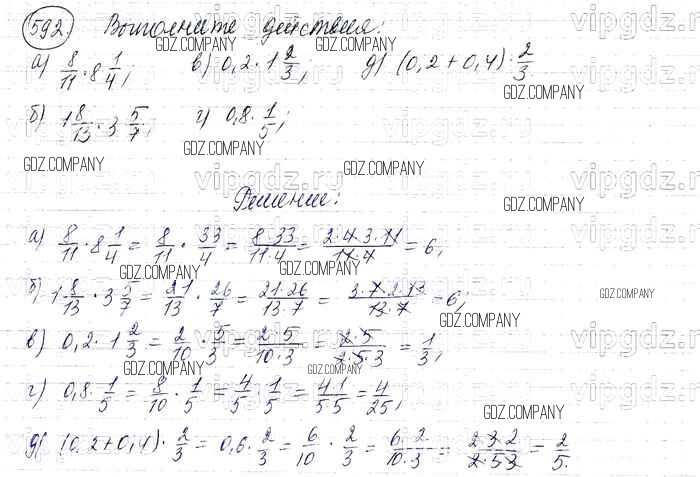 592. Выполните действия:
а) 8/11 · 8 1/4; в) 0,2 · 1 2/3; д) (0,2 + 0,4) · 2/3.
б) 1 8/13 · 3 5/7; г) 0,8 · 1/5;
Решение:
а) 8/11 · 8 1/4 = 8/11 · 33/4 = 8·33/11·4 = 2·4·3·11/11·4 = 6;
б) 1 8/13 · 3 5/7 = 21/13 · 26/7 = 21·26/13·7 = 3·7·2·13/13·7 = 6;
в) 0,2 · 1 2/3 = 2/10 · 5/3 = 2·5/10·3 = 2·5/2·5·3 = 1/3;
г) 0,8 · 1/5 = 8/10 · 1/5 = 4/5 · 1/5 = 4·1/5·5 = 4/25;
д) (0,2+0,4) · 2/3 = 0,6 · 2/3 = 6/10 · 2/3 = 6·2/10·3 = 2·3·2/2·5·3 = 2/5.
GDZ.COMPANY
vipgdz.ru